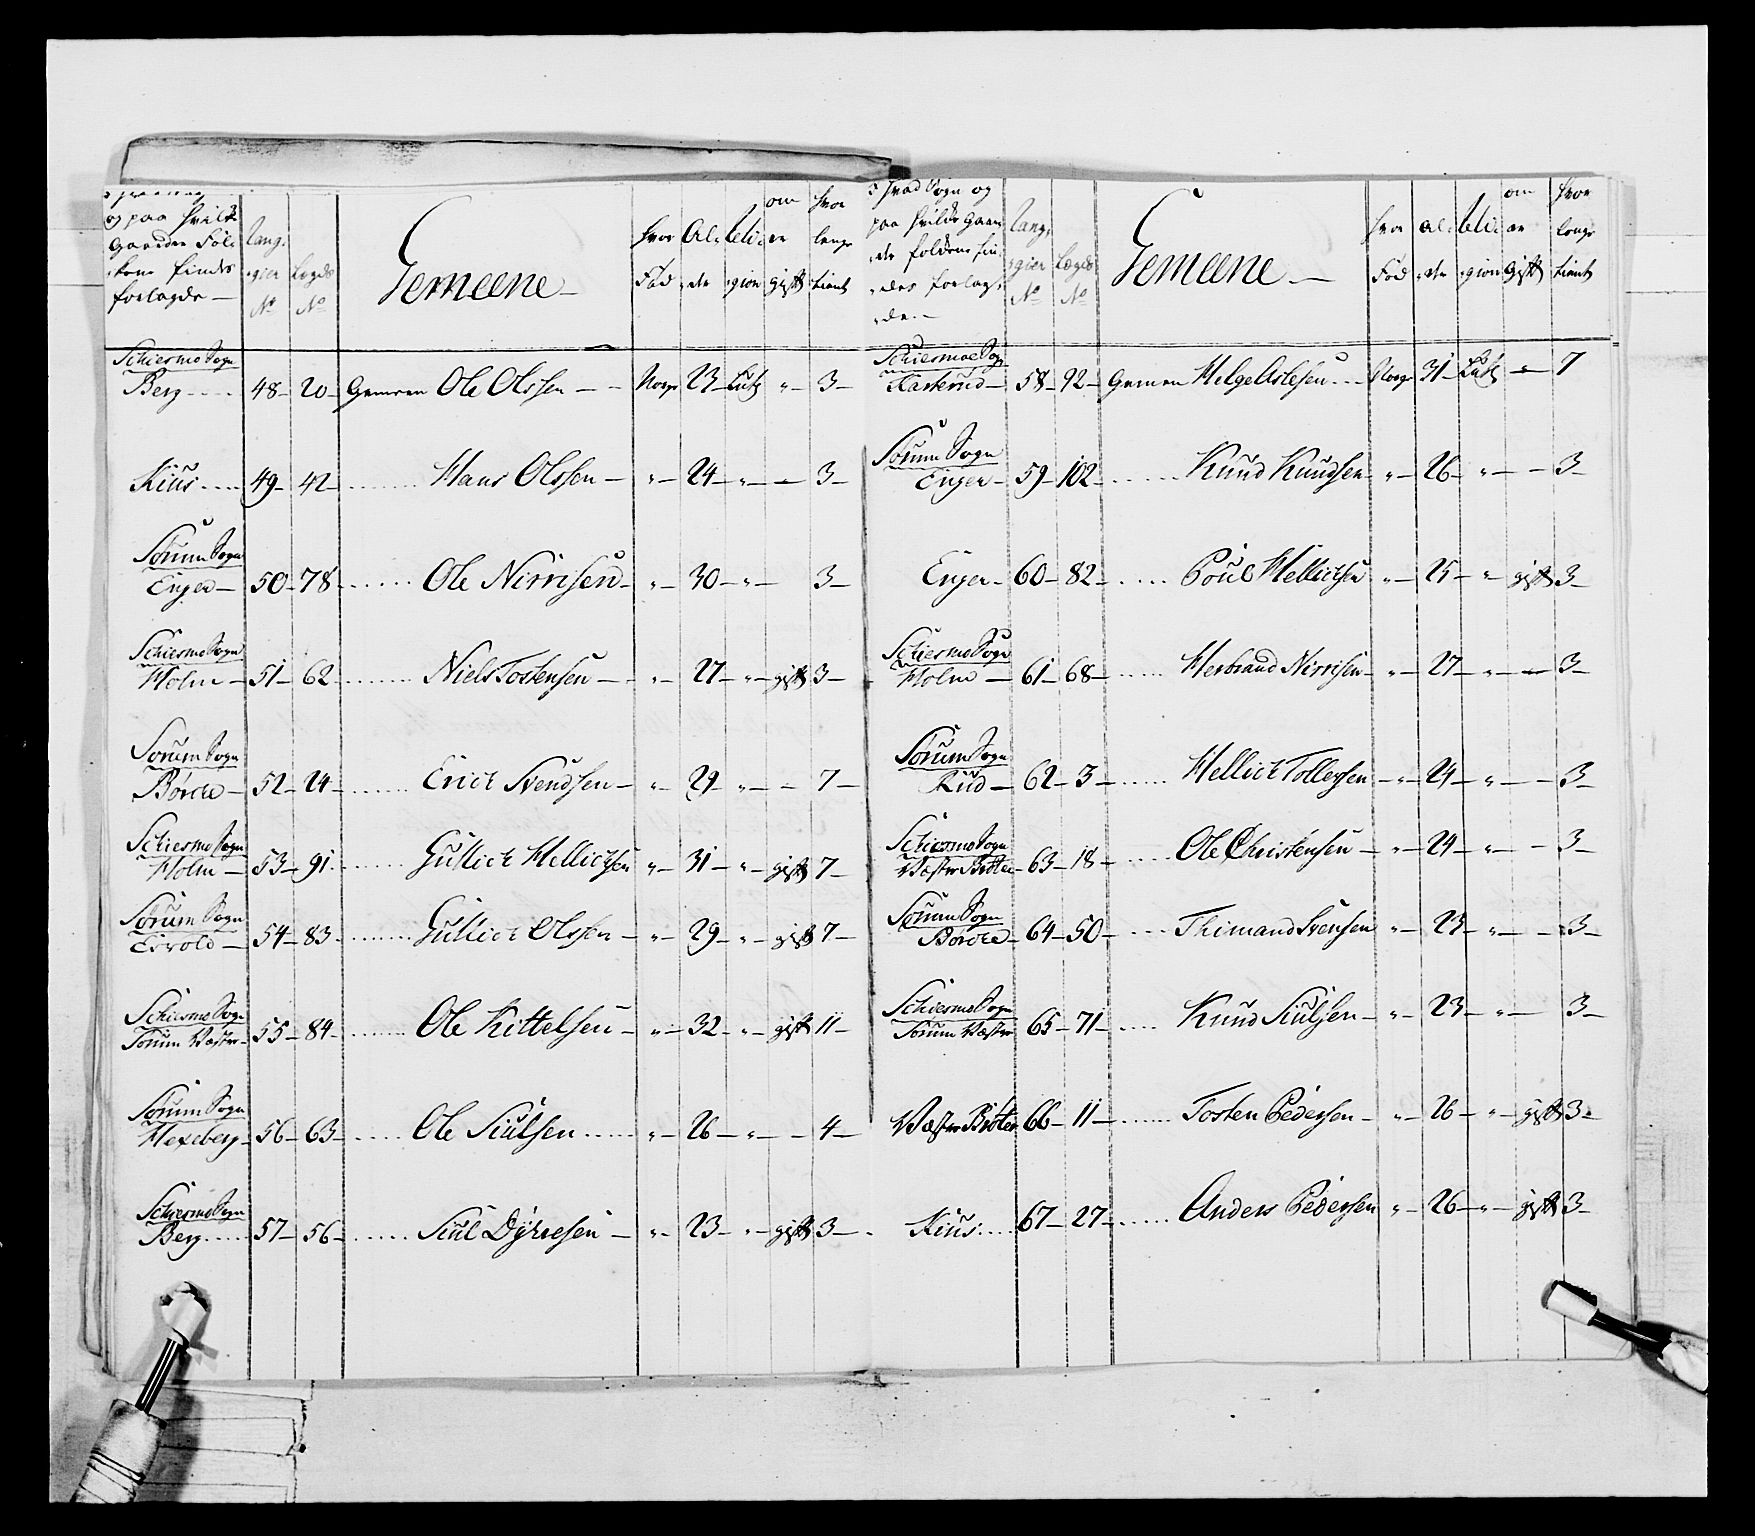 og paa hvilke
Gaarder Fol-
kene findes
forlagde —
Rang-
gier
No
Legds
No
Gemeene —
hvor
Fød
Al-
der
Reli-
gion
om
er
gift
hvor
lenge
tient
Schiesmo Sogn
Berg .... 48 — 20 — Gemeen Ole Olssen — — Norge 23 — Luth " — 3 —
Kius .... 49 — 42 — ........ Hans Olssen — " — 24 — " — — 3 —
Sørum Sogn
Enger — 50 — 78 ........ Ole Nirrisen — " — 30 — " — 3 —
Schiesmo Sogn
Holm — 51 — 62 ........ Niels Tostensen — " — 27 — " — gift 3 —
Sørum Sogn
Børcke — 52 — 24 ........ Erick Svendsen — " — 29 — " — — 7 —
Schiesmo Sogn
Holm — 53 — 91 ........ Gullick Hellichsen " — 31 — " — gift 7 —
Sørum Sogn
Eivold — 54 — 83 ........ Gullick Olssen — " — 29 — " — gift 7 —
Schiesmo Sogn
Sørum Væstre — 55 — 84 ........ Ole Kittelsen — " — 32 — " — gift 11 —
Sørum Sogn
Hexeberg — 56 — 63 — ...... Ole Siulsen ...... " — 26 — " — — 4 —
Schiesmo Sogn
Berg .... 57 — 56 — ...... Siul Dyrresen — " — 23 — " — gift 3 —
I hvad Sogn og
paa hvilke Gaar-
der folkene fin-
des forlag-
de. —
Rang-
gier
No
Lægds
No
Gemeene —
hvor
Fød
al-
der
Reli-
gion
om
er
Gift
hvor
lenge
tient
Schiesmoe Sogn
Karterud — 58 — 92 — Gemeen Helge Aslesen ... Norge 31 — Luth " — 7
Sørum Sogn
Enger — 59 — 102 — ...... Knud Knudsen — " — 26 — " — — 3 —
Enger — 60 — 82 — ...... Poul Hellichsen " — 25 — " — gift 3 —
Schiesmo Sogn
Holm — 61 — 68 — ...... Herbrand Nirrisen — " — 27 — " — — 3 —
Sørum Sogn
Rud — 62 — 3 — ...... Hellick Tollefsen — " — 24 — " — — 3 —
Schiesmo Sogn
Væstre Bråten — 63 — 18 — ...... Ole Christensen — " — 24 — " — — 3 —
Sørum Sogn
Børcke — 64 — 50 — .... Thimand Svensen " — 23 — " — — 3 —
Schiesmo Sogn
Sørum Væstre 65 — 71 — ..... Knud Siulsen — " — 23 — " — 3 —
Væstre Bråten 66 — 11 — ...... Tosten Pedersen — " — 26 — " — gift 3 —
Kius .... 67 — 27 — ...... Anders Pedersen " — 26 — " — gift 3 —